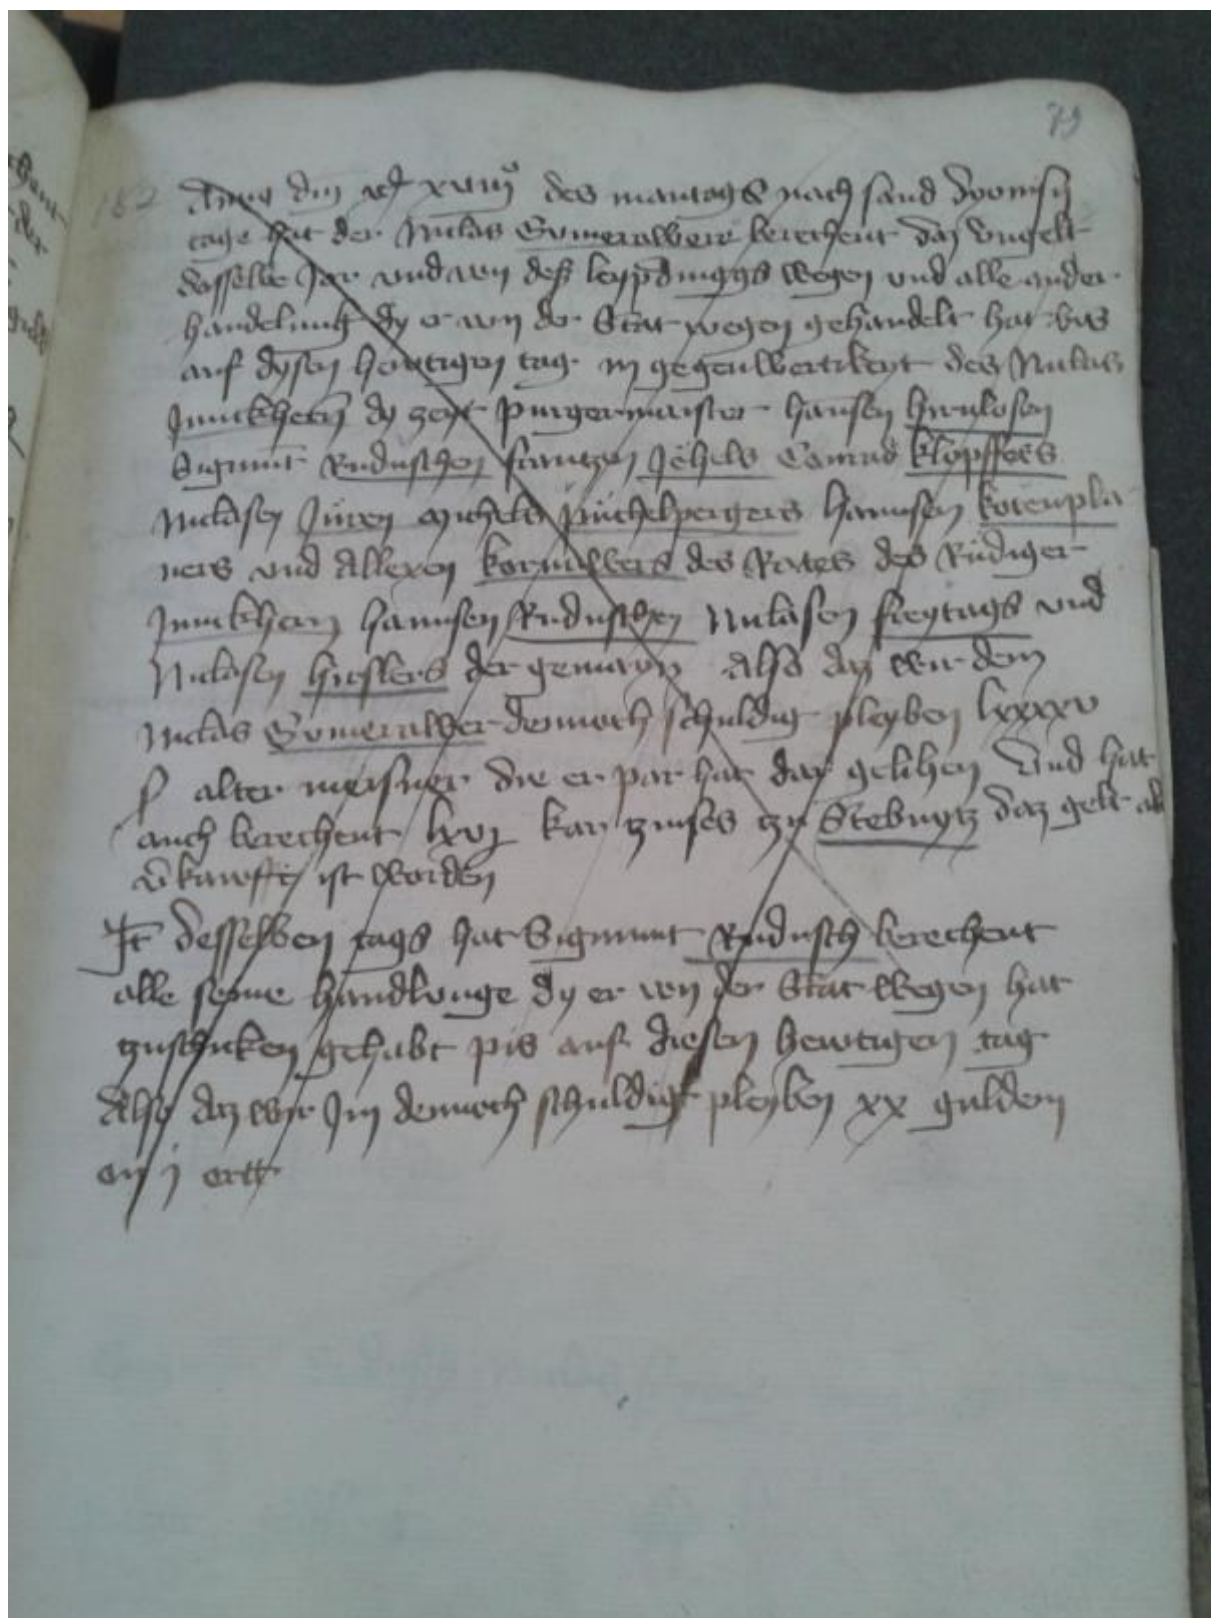 79
182
Anno dm xviij des mantags nach sand Dyonisy
tage hat der Niclas Gumerawer berechent daz Vngelt
desselbe Jar vnd von dess leypdinggs wegen vnd alle ander
handelung dy er von der Stat wegen gehandelt hat bis
auf dysen hewtigen tag in gegenwertikeyt des Niclas
Junckhern dy zeyt Purgermaister hansen hirnlosen
Sigmunt Ruduschen frantzen Jëhels Conrad klöpffers
Niclasen Jüren Michels püchelpergers hannsen kotenpla
ners vnd Allexen kornawers des Rates des Rüdiger
Junckhern hannsen Ruduschen Niclasen freytags vnd
Niclasen hieslers der gemayn Also daz wir dem
Niclas Gumerawer dennoch schuldig pleyben lxxxxv
ß alter meisner die er par hat dar gelihen Vnd hat
auch berechent lxvj kar zinses zu Stebnytz daz gelt al
v̄kawfft ist worden
It desselben tags hat Sigmunt Rudusch berechent
alle seyne handlunge dy er von der Stat wegen hat
zuschicken gehabt pis auf diesen hewtigen tag
Also daz wir Im dennoch schuldigt pleyben xx gulden
on j ortt